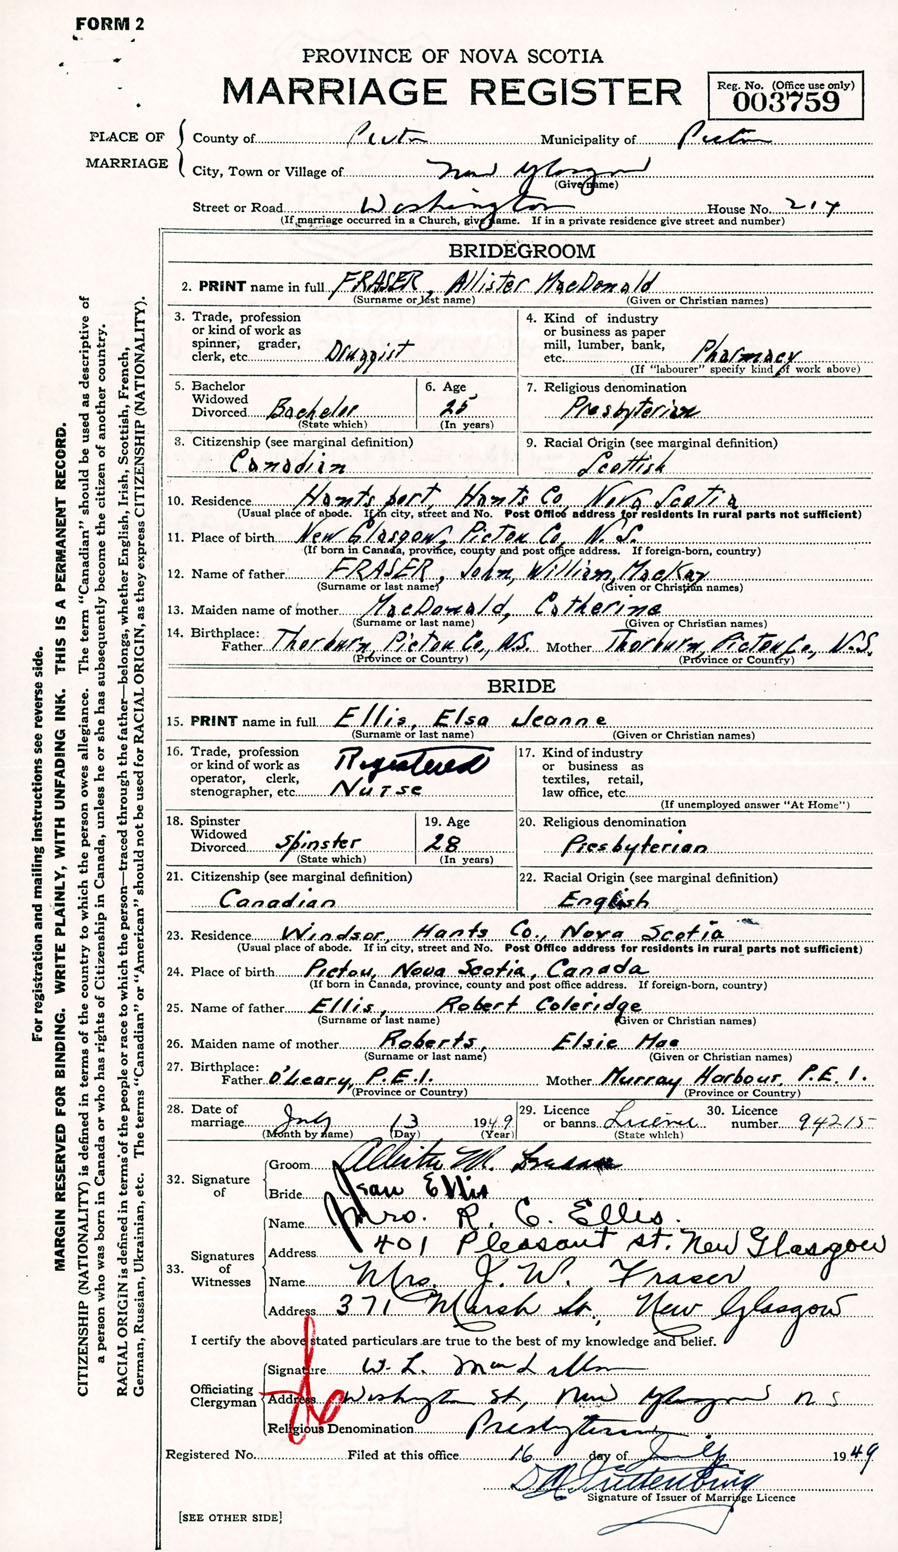 FORM 2
PROVINCE OF NOVA SCOTIA
MARRIAGE REGISTER
Reg. No. (Office use only)
003759
PLACE OF MARRIAGE
County of Pictou Municipality of Pictou
City, Town or Village of New Glasgow
(Give name)
Street or Road Washington House No. 214
(If marriage occurred in a Church, give name. If in a private residence give street and number)
BRIDEGROOM
2. PRINT name in full FRASER, Allister MacDonald
(Surname or last name) (Given or Christian names)
3. Trade, profession or kind of work as spinner, grader, clerk, etc. Druggist
4. Kind of industry or business as paper mill, lumber, bank, etc. Pharmacy
(If "labourer" specify kind of work above)
5. Bachelor Widowed Divorced Bachelor
(State which)
6. Age 25
(In years)
7. Religious denomination Presbyterian
8. Citizenship (see marginal definition)
Canadian
9. Racial Origin (see marginal definition)
Scottish
10. Residence Hantsport, Hants Co, Nova Scotia
(Usual place of abode. If in city, street and No. Post Office address for residents in rural parts not sufficient)
11. Place of birth New Glasgow, Pictou Co, N.S.
(If born in Canada, province, county and post office address. If foreign-born, country)
12. Name of father FRASER, John, William, MacKay
(Surname or last name) (Given or Christian names)
13. Maiden name of mother MacDonald, Catherine
(Surname or last name) (Given or Christian names)
14. Birthplace:
Father Thorburn, Pictou Co., N.S. Mother Thorburn, Pictou Co, N.S.
(Province or Country) (Province or Country)
BRIDE
15. PRINT name in full Ellis, Elsa Jeanne
(Surname or last name) (Given or Christian names)
16. Trade, profession or kind of work as operator, clerk, stenographer, etc. Registered Nurse
17. Kind of industry or business as textiles, retail, law office, etc.
(If unemployed answer "At Home")
18. Spinster Widowed Divorced Spinster
(State which)
19. Age 28
(In years)
20. Religious denomination
Presbyterian
21. Citizenship (see marginal definition)
Canadian
22. Racial Origin (see marginal definition)
English
23. Residence Windsor, Hants Co., Nova Scotia
(Usual place of abode. If in city, street and No. Post Office address for residents in rural parts not sufficient)
24. Place of birth Pictou, Nova Scotia, Canada
(If born in Canada, province, county and post office address. If foreign-born, country)
25. Name of father Ellis, Robert Coleridge
(Surname or last name) (Given or Christian names)
26. Maiden name of mother Roberts, Elsie Mae
(Surname or last name) (Given or Christian names)
27. Birthplace:
Father O'Leary, P.E.I. Mother Murray Harbour, P.E.I.
(Province or Country) (Province or Country)
28. Date of marriage July 13 1949
(Month by name) (Day) (Year)
29. Licence or banns License
(State which)
30. Licence number 94215
32. Signature of
Groom Allister M. Fraser
Bride Jean Ellis
33. Signatures of Witnesses
Name Mrs. R. C. Ellis.
Address 401 Pleasant St. New Glasgow
Name Mrs. J. W. Fraser
Address 371 Marsh St., New Glasgow
I certify the above stated particulars are true to the best of my knowledge and belief.
Officiating Clergyman
Signature W. L.
Address Washington St, New Glasgow N S
Religious Denomination Presbyterian
Registered No. Filed at this office 16 day of July 1949
Signature of Issuer of Marriage Licence
[SEE OTHER SIDE]
For registration and mailing instructions see reverse side.
MARGIN RESERVED FOR BINDING. WRITE PLAINLY, WITH UNFADING INK. THIS IS A PERMANENT RECORD.
CITIZENSHIP (NATIONALITY) is defined in terms of the country to which the person owes allegiance. The term "Canadian" should be used as descriptive of
a person who was born in Canada or who has rights of Citizenship in Canada, unless he or she has subsequently become the citizen of another country.
RACIAL ORIGIN is defined in terms of the people or race to which the person—traced through the father—belongs, whether English, Irish, Scottish, French,
German, Russian, Ukrainian, etc. The terms "Canadian" or "American" should not be used for RACIAL ORIGIN, as they express CITIZENSHIP (NATIONALITY).